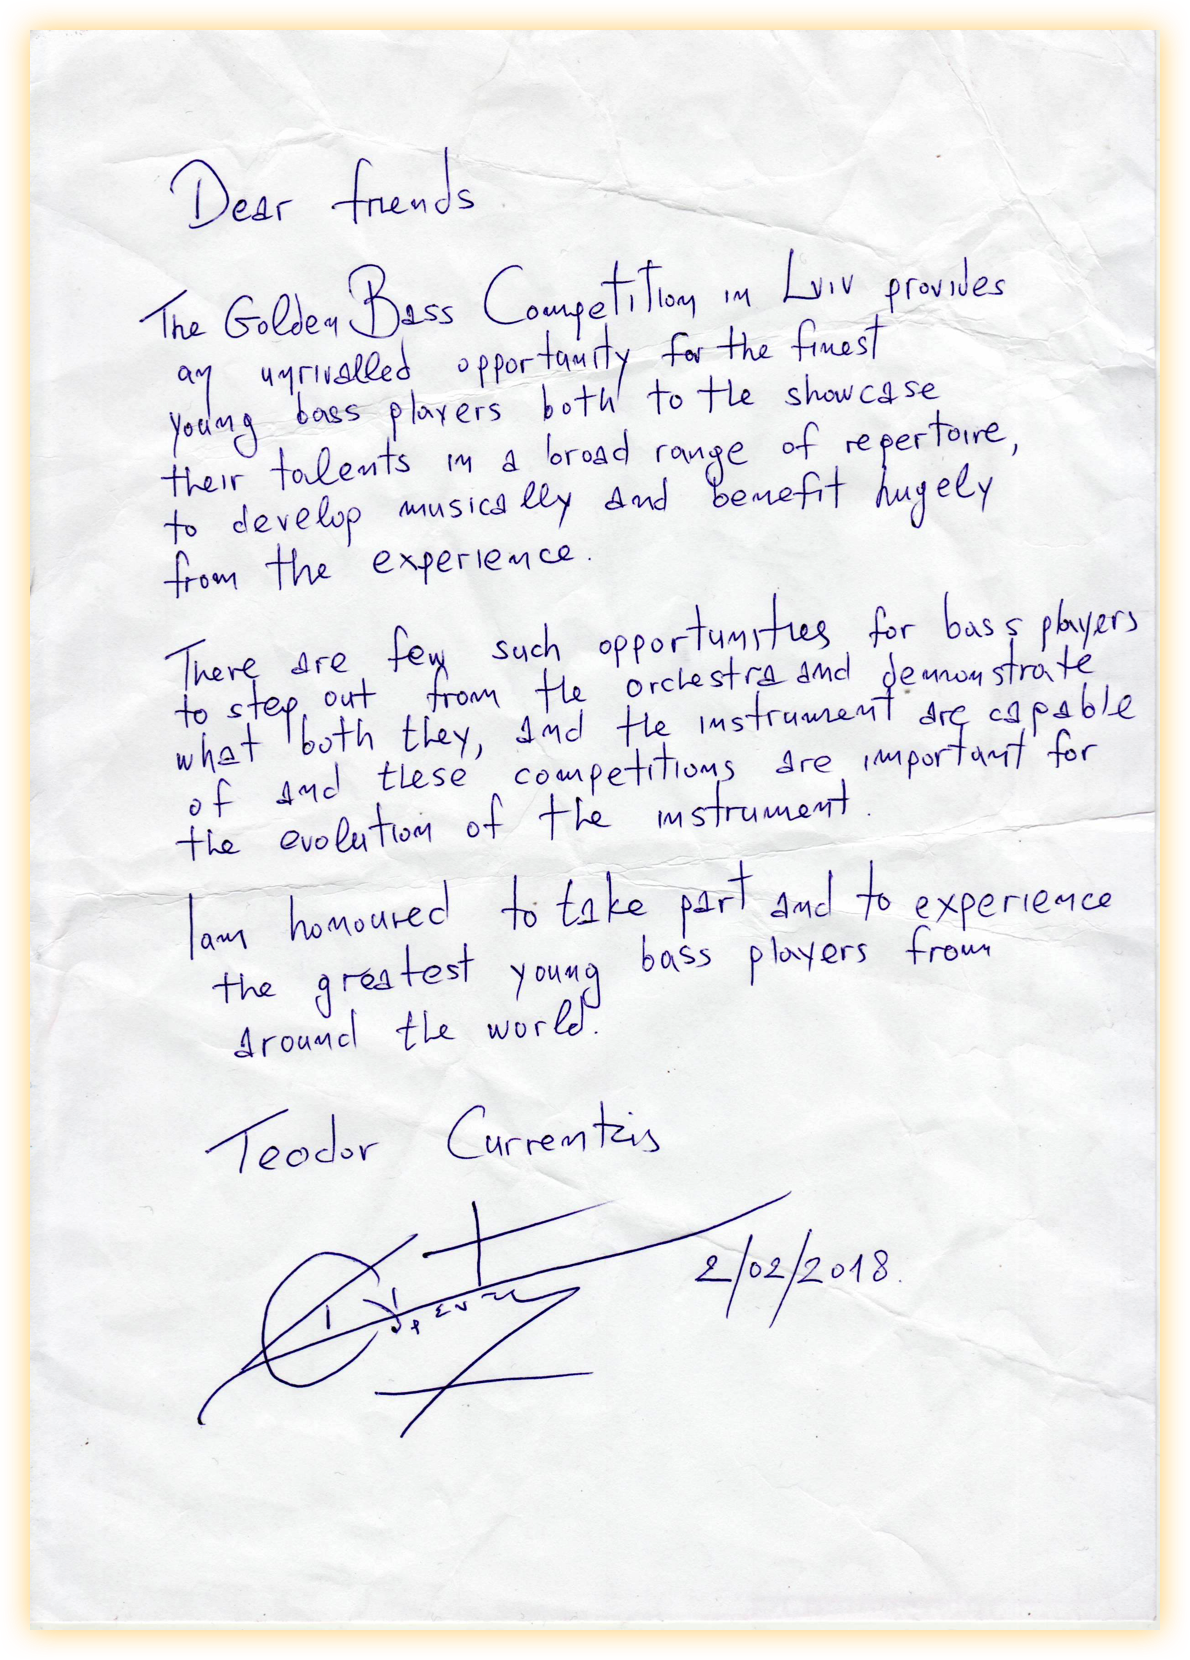 Dear friends
The Golden Bass Competition in Lviv provides
an unrivalled opportunity for the finest
young bass players both to the showcase
their talents in a broad range of repertoire,
to develop musically and benefit hugely
from the experience.
There are few such opportunities for bass players
to step out from the orchestra and demonstrate
what both they, and the instrument are capable
of and these competitions are important for
the evolution of the instrument.
I am honoured to take part and to experience
the greatest young bass players from
around the world.
Teodor Currentzis
2/02/2018.